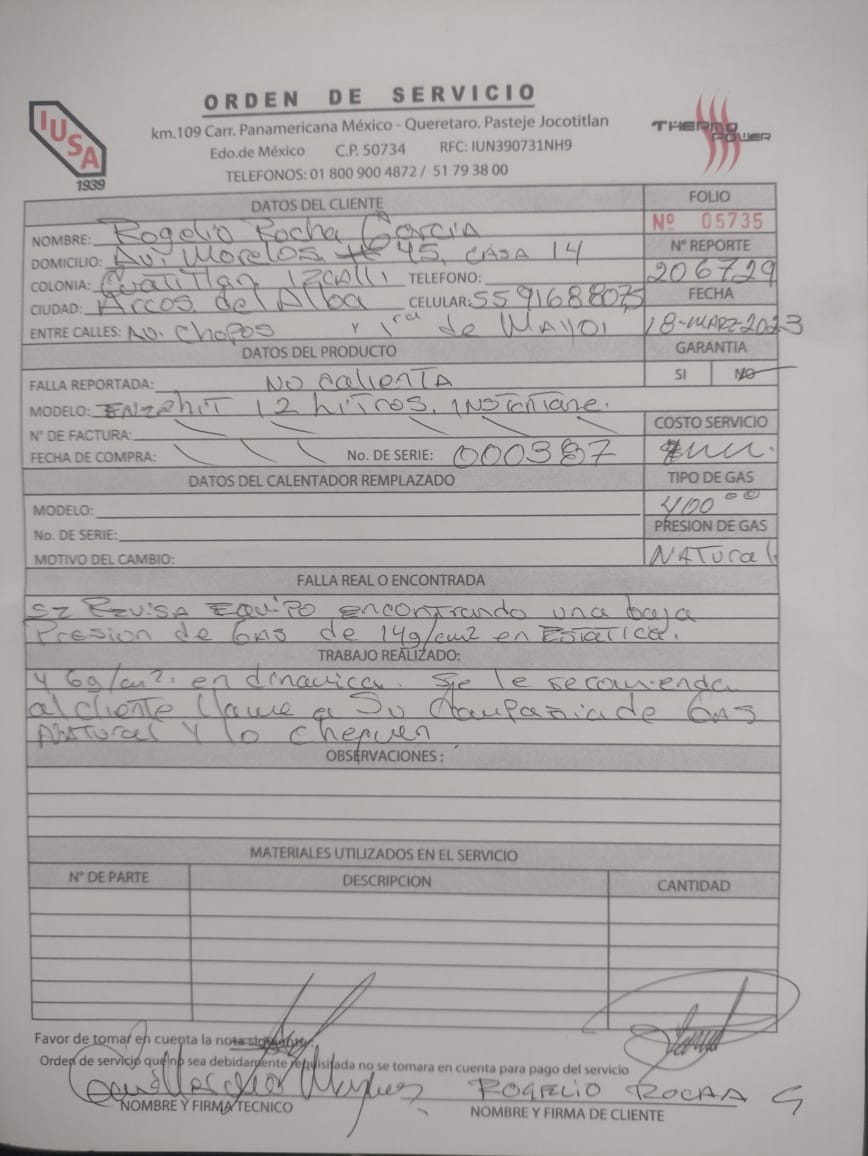 IUSA
1939
ORDEN DE SERVICIO
km.109 Carr. Panamericana México - Queretaro. Pasteje Jocotitlan
Edo.de México C.P. 50734 RFC: IUN390731NH9
TELEFONOS: 01 800 900 4872 / 51 79 38 00
THERMO POWER
DATOS DEL CLIENTE FOLIO
Nº 05735
NOMBRE: Rogelio Rocha Garcia
Nº REPORTE
DOMICILIO: Av. Morelos, # 45, CASA 14
206729
COLONIA: Cuatitlan Izcalli TELEFONO:
FECHA
CIUDAD: Arcos del Alba CELULAR: 5591688075
ENTRE CALLES: AV. Chopos y 1ra de Mayo 18-MARZ-2023
DATOS DEL PRODUCTO GARANTIA
FALLA REPORTADA: No calienta SI NO
MODELO: 12 Litros,
Nº DE FACTURA: COSTO SERVICIO
FECHA DE COMPRA: No. DE SERIE: 000387
DATOS DEL CALENTADOR REMPLAZADO TIPO DE GAS
MODELO: 400 00
No. DE SERIE: PRESION DE GAS
MOTIVO DEL CAMBIO: NATural
FALLA REAL O ENCONTRADA
SE REVISA EQUIPO encontrando una baja
Presion de GAS de 14g/cm2 en Estatica.
TRABAJO REALIZADO:
y 6g/cm2. en dinamica. Se le recomienda
al cliente llame a Su Compañia de GAS
NATural y lo chequen
OBSERVACIONES :
MATERIALES UTILIZADOS EN EL SERVICIO
Nº DE PARTE DESCRIPCION CANTIDAD
Favor de tomar en cuenta la nota siguiente:
Orden de servicio que no sea debidamente requisitada no se tomara en cuenta para pago del servicio
ROGELIO ROCHA G
NOMBRE Y FIRMA TECNICO NOMBRE Y FIRMA DE CLIENTE